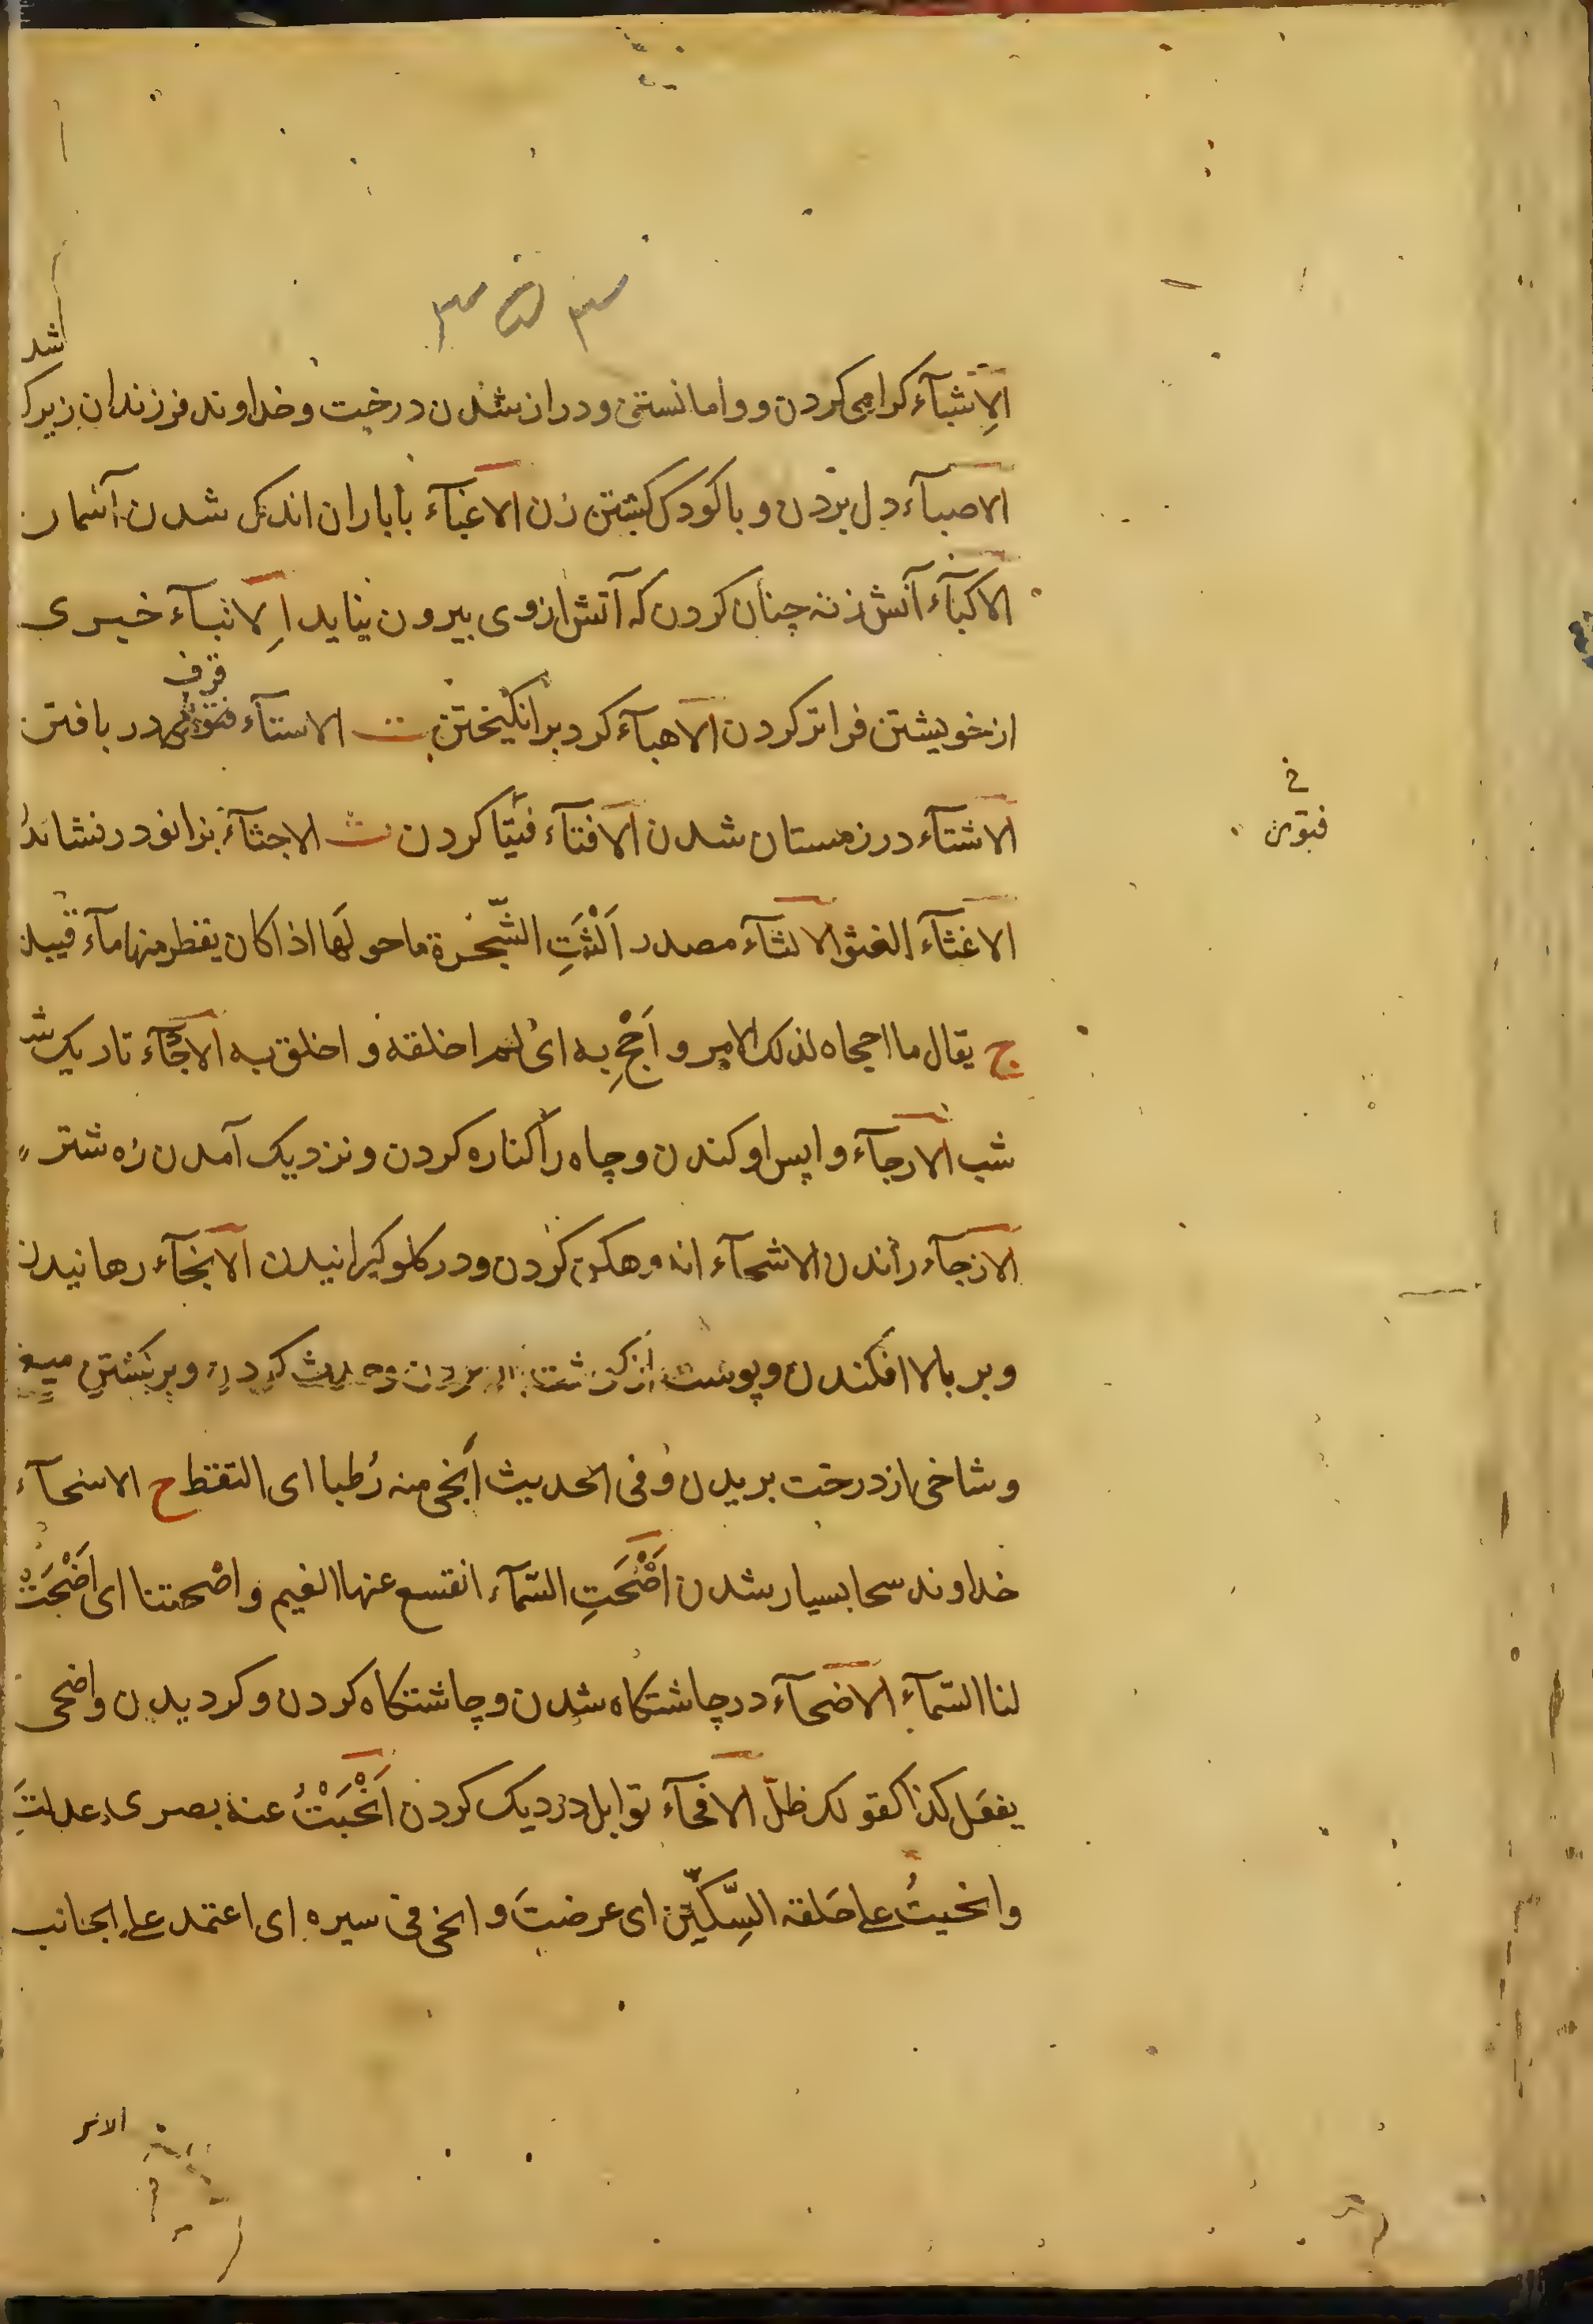 ۳۵۳
شد
الاِشبآء کرامی کردن و وامانستن و دراز شدن درخت و خداوند فرزندان زیرک
الاصبآء دل بردن و باکودک کشتن زن الاغبآء باباران اندک شدن آسمان
الاکبآء آتش زنه چنان کردن که آتش ازوی بیرون نیاید اِلانبآء خبری
قزف
از خویشتن فراتر کردن الاهبآء کرد برانکیختن ت الاستآء در بافتن
الاشتآء در زمستان شدن الافتآء فتیا کردن ث الاجثآء بزانو در نشاندن
الاغثآء الغثو الالثآء مصدر اَلْثَتِ الشّجرة ماحولها اذا کان یقطر منها مآء
ج یقال ما احجاه لذلک الامر و اَحْجِ به ای اخلقه و اخلق به الاجآء تاریک شد
شب الارجآء واپس اوکندن و چاه را کناره کردن و نزدیک آمدن زه شتر
الازجآء راندن الاشجآء اندوهکن کردن و در کلو کیرانیدن الانجآء رهانیدن
و بر بالا افکندن و پوست از کردن و حدیث کردن و برکشتن میغ
و شاخی از درخت بریدن و فی الحدیث اَنجی منه رُطبا ای التقط ح الاسحآء
خداوند سحا بسیار شدن اَضْحَتِ السّمآء انقشع عنها الغیم و اضحتنا ای اَضْحَتْ
لنا السّمآء الاضحآء در چاشتکاه شدن و چاشتکاه کردن و کردیدن واضحی
یفعل کذا کقولک ظلّ الافحآء توابل در دیک کردن اَنْحَیْتُ عنه بصری عدلتُ
وانحیتُ علی حلقه السِّکّین ای عرضتُ و انحی فی سیره ای اعتمد علی الجانب
خ
فبوس
الاسر